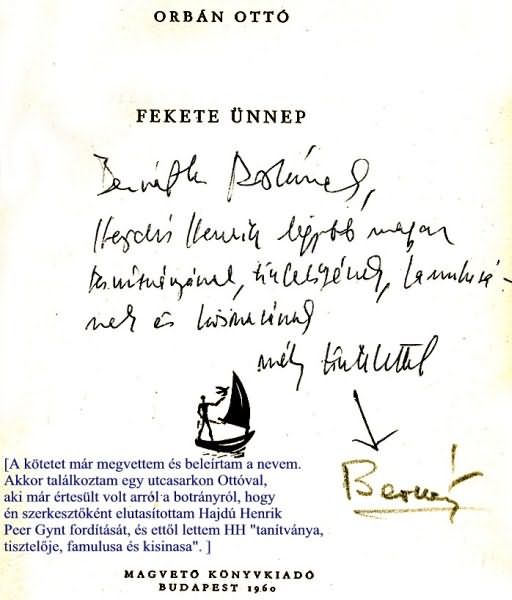 ORBÁN OTTÓ
FEKETE ÜNNEP
Bernáth
Hajdú Henrik legjobb magyar
tanítványának, tisztelőjének, famulusá-
nak és kisinasának
mély tisztelettel
[A kötetet már megvettem és beleírtam a nevem.
Akkor találkoztam egy utcasarkon Ottóval,
aki már értesült volt arról a botrányról, hogy
én szerkesztőként elutasítottam Hajdú Henrik
Peer Gynt fordítását, és ettől lettem HH "tanítványa,
tisztelője, famulusa és kisinasa". ]
MAGVETŐ KÖNYVKIADÓ
BUDAPEST 1960